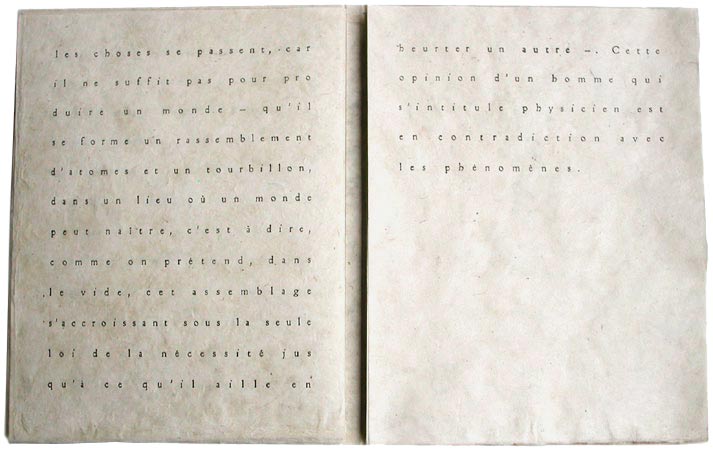 les choses se passent, car
il ne suffit pas pour pro
duire un monde — qu'il
se forme un rassemblement
d'atomes et un tourbillon,
dans un lieu où un monde
peut naître, c'est à dire,
comme on prétend, dans
le vide, cet assemblage
s'accroissant sous la seule
loi de la nécessité jus
qu'à ce qu'il aille en
heurter un autre —. Cette
opinion d'un homme qui
s'intitule physicien est
en contradiction avec
les phénomènes.